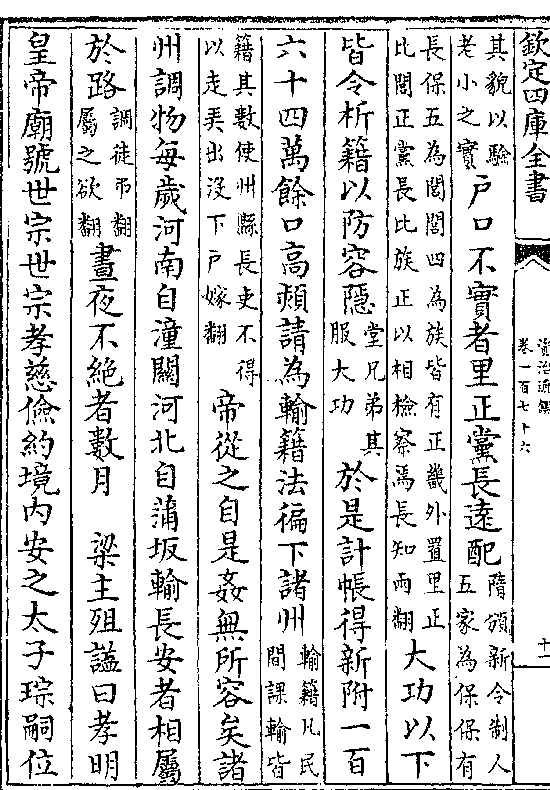 欽定四庫全書
資治通鑑
卷一百七十六
十一
其貌以驗
老小之實
戸口不實者里正黨長遠配
隋頒新令制人
五家為保保有
長保五為閭閭四為族皆有正畿外置里正
比閭正黨長比族正以相檢察焉長知兩翻
大功以下
皆令析籍以防容隱
堂兄弟其
服大功
於是計帳得新附一百
六十四萬餘口高熲請為輸籍法徧下諸州
輸籍凡民
間課輸皆
籍其數使州縣長吏不得
以走弄出沒下戸嫁翻
帝從之自是姦無所容矣諸
州調物每歲河南自潼關河北自蒲坂輸長安者相屬
於路
調徒弔翻
屬之欲翻
晝夜不絶者數月
梁主殂諡曰孝明
皇帝廟號世宗世宗孝慈儉約境内安之太子琮嗣位